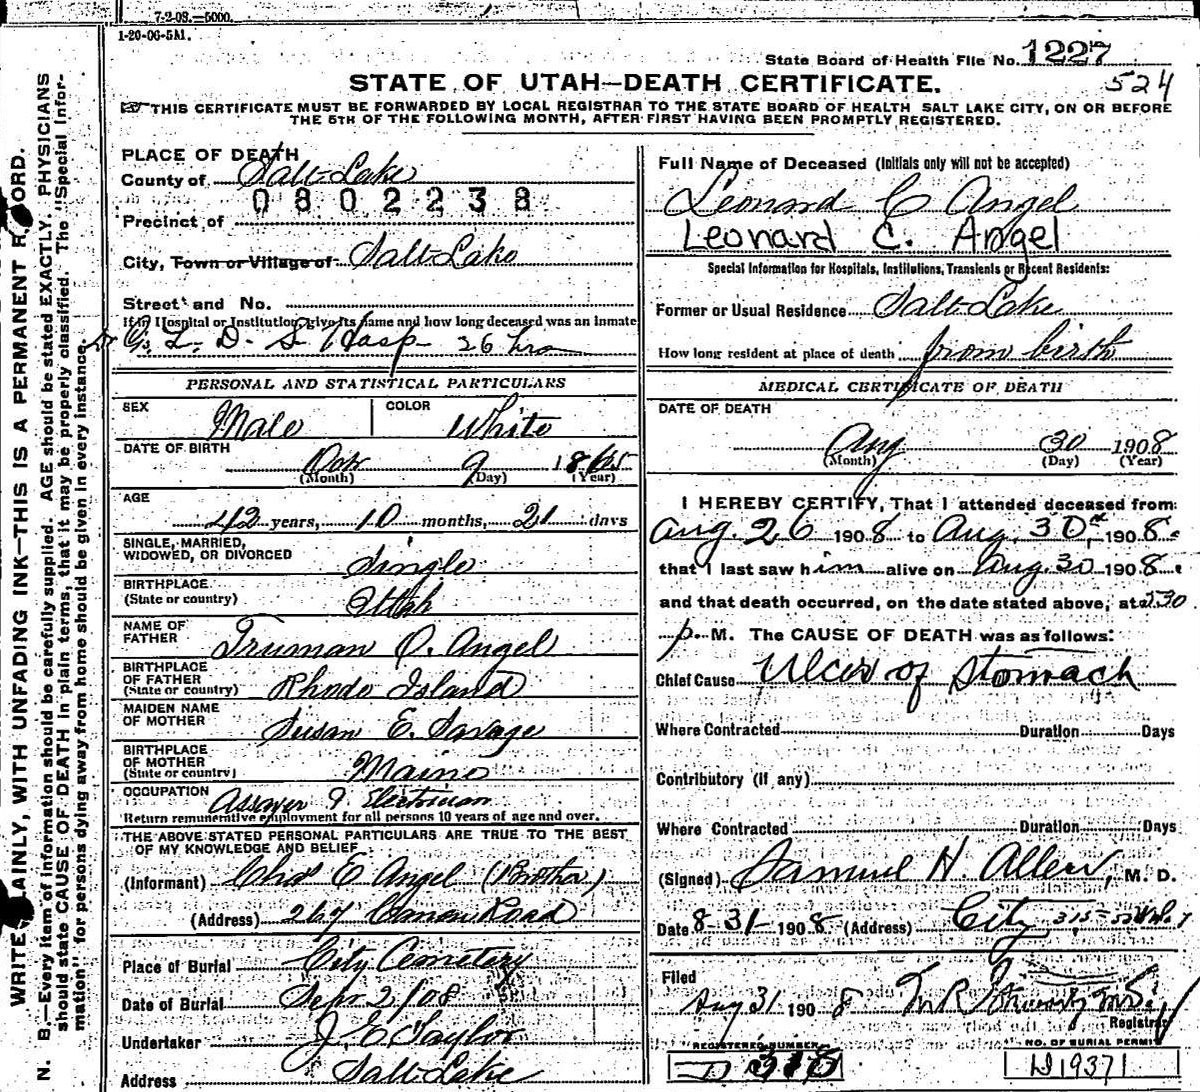 7-2-08.—5000.
1-20-06-5M.
State Board of Health File No. 1227
524
STATE OF UTAH—DEATH CERTIFICATE.
THIS CERTIFICATE MUST BE FORWARDED BY LOCAL REGISTRAR TO THE STATE BOARD OF HEALTH SALT LAKE CITY, ON OR BEFORE
THE 5TH OF THE FOLLOWING MONTH, AFTER FIRST HAVING BEEN PROMPTLY REGISTERED.
WRITE PLAINLY, WITH UNFADING INK—THIS IS A PERMANENT RECORD.
N. B.—Every item of information should be carefully supplied. AGE should be stated EXACTLY. PHYSICIANS
should state CAUSE OF DEATH in plain terms, that it may be properly classified. The "Special Infor-
mation" for persons dying away from home should be given in every instance.
PLACE OF DEATH
County of Salt Lake
0802238
Precinct of
City, Town or Village of Salt Lake
Street and No.
If in Hospital or Institution, give its name and how long deceased was an inmate
L. D. S. Hosp 26 hrs
PERSONAL AND STATISTICAL PARTICULARS
SEX Male COLOR White
DATE OF BIRTH
Oct 9 1865
(Month) (Day) (Year)
AGE
42 years, 10 months, 21 days
SINGLE, MARRIED,
WIDOWED, OR DIVORCED Single
BIRTHPLACE
(State or country) Utah
NAME OF
FATHER Truman O. Angel
BIRTHPLACE
OF FATHER
(State or country) Rhode Island
MAIDEN NAME
OF MOTHER Susan E. Savage
BIRTHPLACE
OF MOTHER
(State or country) Maine
OCCUPATION Assayer & Electrician
Return remunerative employment for all persons 10 years of age and over.
THE ABOVE STATED PERSONAL PARTICULARS ARE TRUE TO THE BEST
OF MY KNOWLEDGE AND BELIEF
(Informant) Chas E Angel (Brother)
(Address) Road
Place of Burial City Cemetery
Date of Burial Sept 2/08
Undertaker J. E. Taylor
Address Salt Lake
Full Name of Deceased (Initials only will not be accepted)
Leonard C Angel
Leonard C. Angel
Special Information for Hospitals, Institutions, Transients or Recent Residents:
Former or Usual Residence Salt Lake
How long resident at place of death from birth
MEDICAL CERTIFICATE OF DEATH
DATE OF DEATH
Aug 30 1908
(Month) (Day) (Year)
I HEREBY CERTIFY, That I attended deceased from
Aug. 26 1908 to Aug. 30 1908.
that I last saw him alive on Aug. 30 1908.
and that death occurred, on the date stated above, at 230
p. M. The CAUSE OF DEATH was as follows:
Chief Cause Ulcer of Stomach
Where Contracted Duration Days
Contributory (if any)
Where Contracted Duration Days
(Signed) Samuel H. Allen, M. D.
Date 8-31-1908 (Address) City
Filed
Aug 31 1908
Registrar
REGISTERED NUMBER
D 318
NO. OF BURIAL PERMIT
D19371